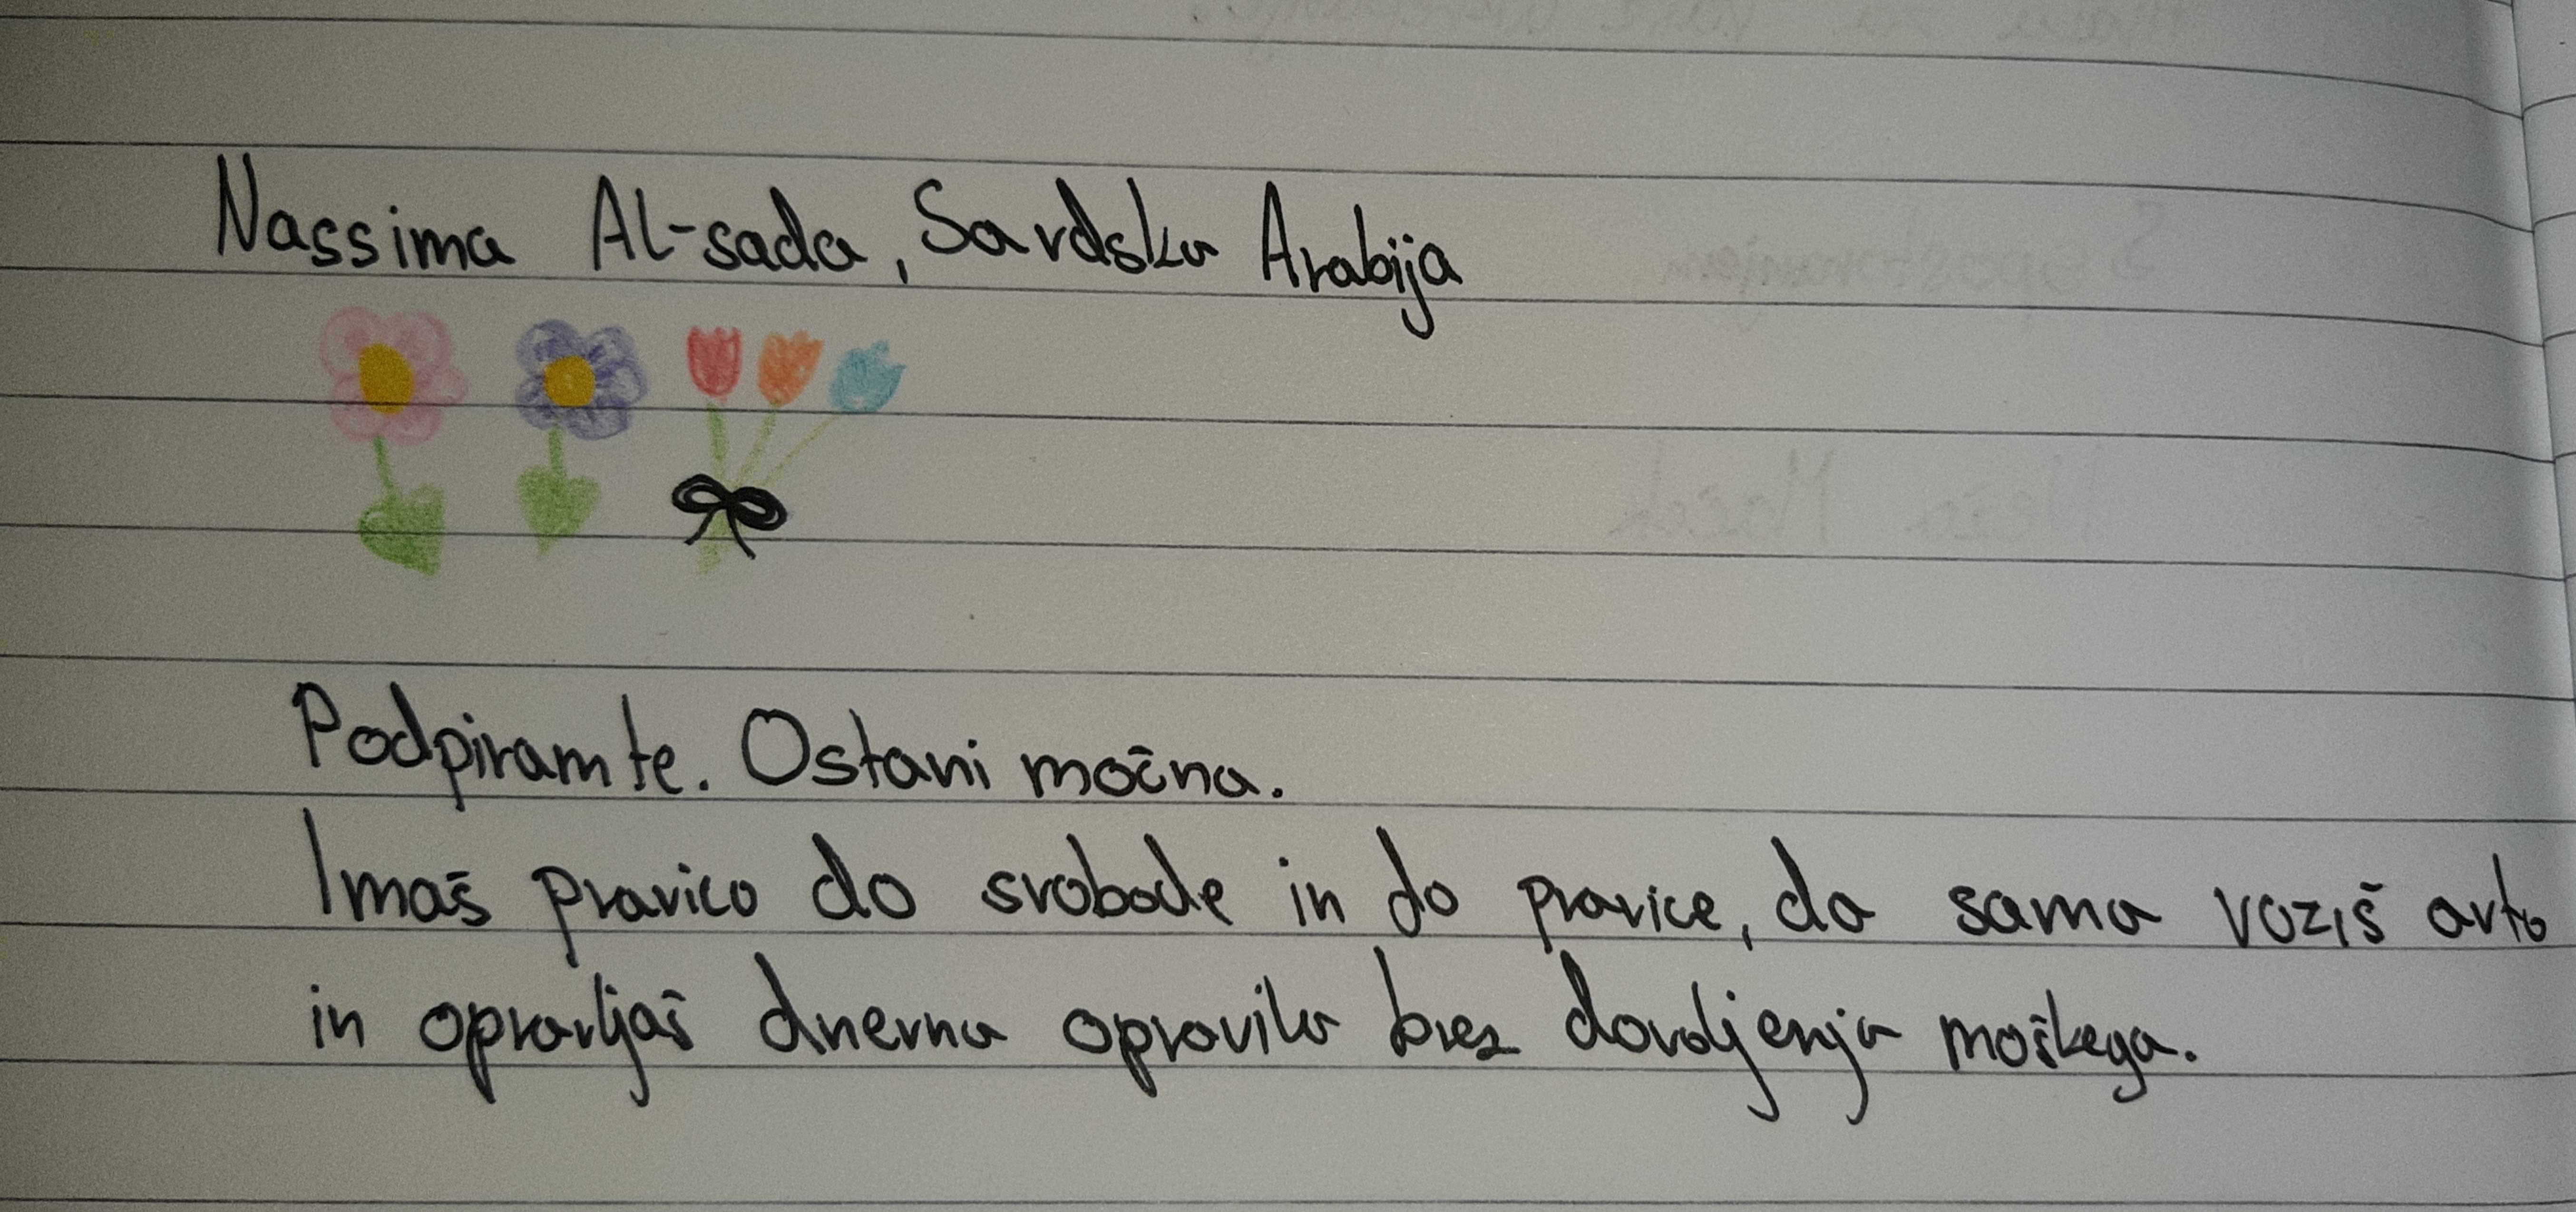 Nassima Al-sada, Savdska Arabija
Podpiram te. Ostani močna.
Imaš pravico do svobode in do pravice, da sama voziš avto
in opravljaš dnevna opravila brez dovoljenja moškega.